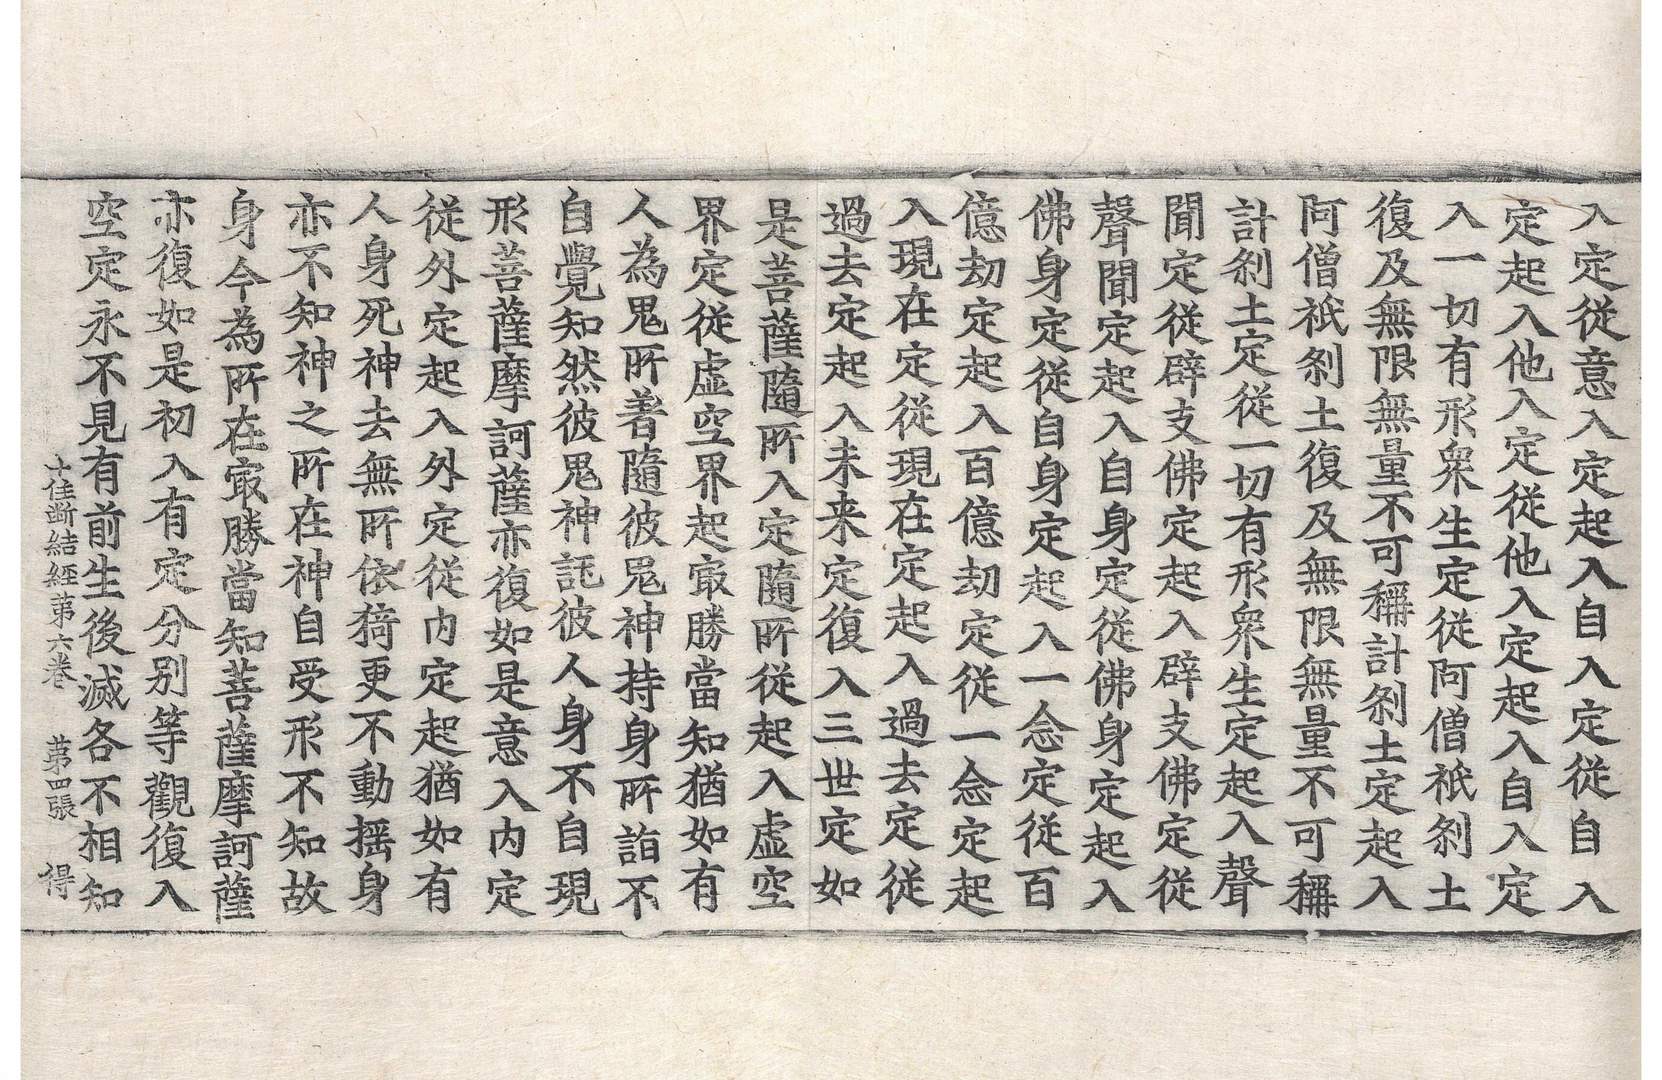 入定從意入定起入自入定從自入
定起入他入定從他入定起入自入定
入一切有形衆生定從阿僧祇刹土
復及無限無量不可稱計刹土定起入
阿僧祇刹土復及無限無量不可稱
計刹土定從一切有形衆生定起入聲
聞定從辟支佛定起入辟支佛定從
聲聞定起入自身定從佛身定起入
佛身定從自身定起入一念定從百
億劫定起入百億劫定從一念定起
入現在定從現在定起入過去定從
過去定起入未来定復入三世定如
是菩薩隨所入定隨所從起入虛空
界定從虛空界起㝡勝當知猶如有
人為鬼所著隨彼鬼神持身所詣不
自覺知然彼鬼神託彼人身不自現
形菩薩摩訶薩亦復如是意入内定
從外定起入外定從内定起猶如有
人身死神去無所依猗更不動摇身
亦不知神之所在神自受形不知故
身今為所在㝡勝當知菩薩摩訶薩
亦復如是初入有定分别等觀復入
空定永不見有前生後滅各不相知
十住斷結經第六卷 第四張 得